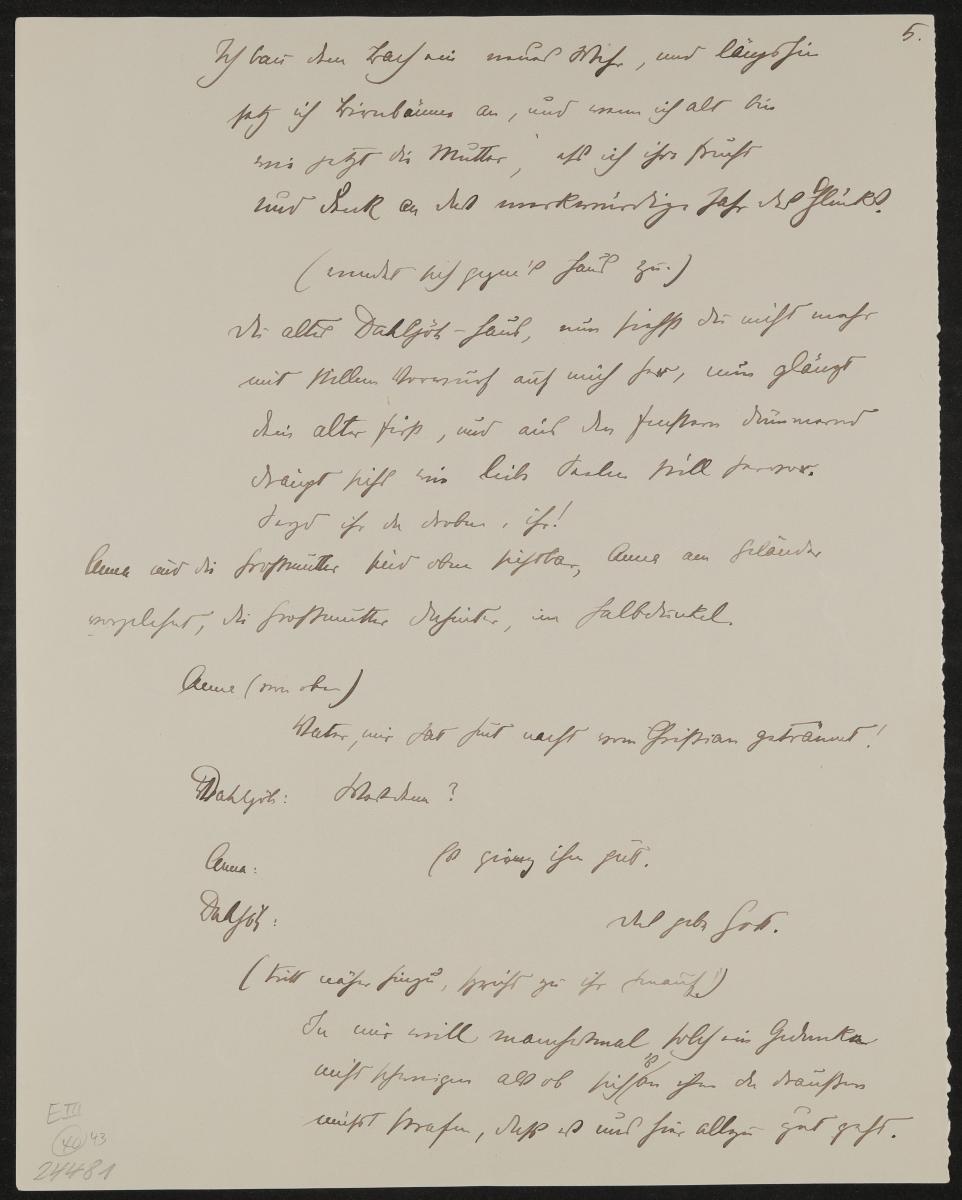 5.
Ich bau dem Bach ein neues Wehr, und längshin
setz ich Birnbäume an, und wenn ich alt bin
wie jetzt die Mutter, ess ich ihre Frucht
und denk an das merkwürdige Jahr des Glücks.
(wendet sich gegen's Haus zu.)
Du altes Dahljöh-Haus, nun siehst du nicht mehr
mit stillem Vorwurf auf mich her, nun glänzt
dein alter First, und aus den Fenstern dämmernd
drängt sichs wie liebe Seelen still hervor.
Seyd ihr da droben, ihr!
Anna und die Großmutter sind oben sichtbar, Anna am Geländer
vorgelehnt, die Großmutter dahinter, im Halbdunkel.
Anna (von oben)
Vater, mir hat heut nacht vom Christian geträumt!
Dahljöh: Was denn?
Anna: Es gieng ihm gut.
Dahljöh: Das gebe Gott.
(tritt näher hinzu, spricht zu ihr hinauf)
In mir will manchesmal solch ein Gedanke
nicht schweigen als ob sichs an ihm da draußen
müsst strafen, dass es uns hier allzu gut geht.
E III
43
24481